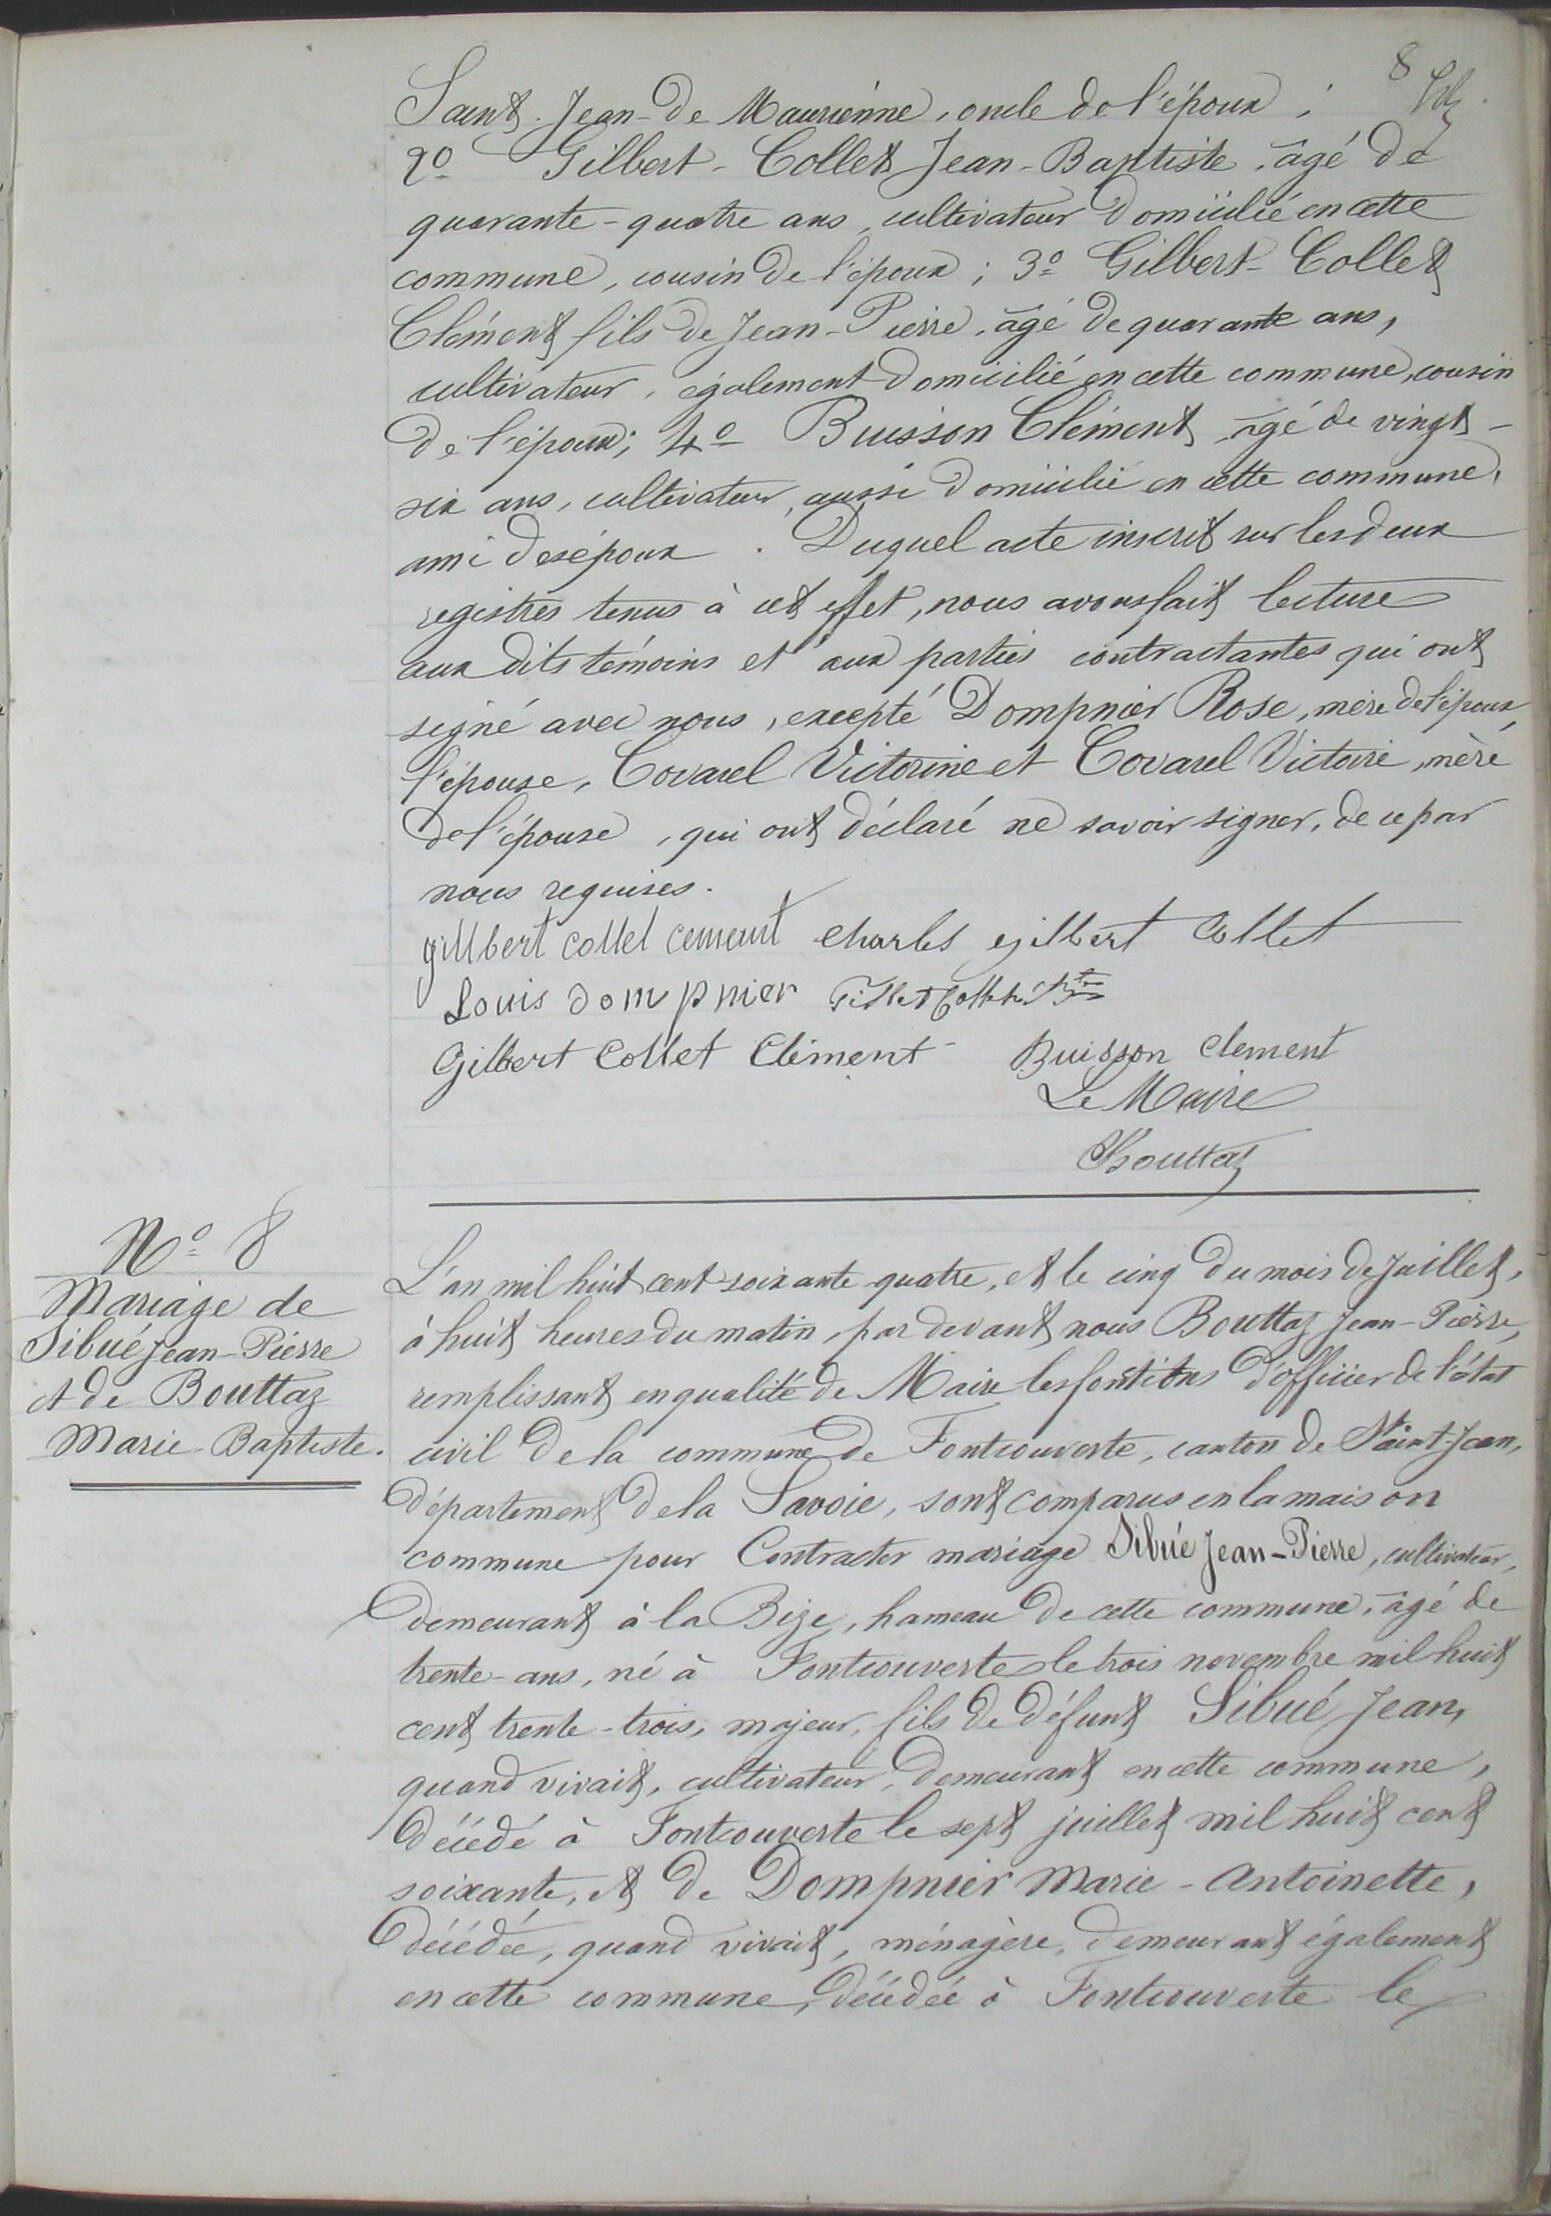 8
Saint-Jean-de Maurienne, oncle de l'époux ;
2º Gilbert-Collet Jean-Baptiste, âgé de
quarante-quatre ans, cultivateur domicilié en cette
commune, cousin de l'époux ; 3º Gilbert-Collet
Clément fils de Jean-Pierre, âgé de quarante ans,
cultivateur, également domicilié en cette commune, cousin
de l'époux ; 4º Buisson Clément, âgé de vingt-
six ans, cultivateur, aussi domicilié en cette commune,
ami des époux. Duquel acte inscrit sur les deux
registres tenus à cet effet, nous avons fait lecture
aux dits témoins et aux parties contractantes qui ont
signé avec nous, excepté Dompnier Rose, mère de l'époux,
l'épouse, Covarel Victorine et Covarel Victoire, mère
de l'épouse, qui ont déclaré ne savoir signer, de ce par
nous requises.
gillbert collet cement charles gilbert Collet
Louis dompnier
Gilbert Collet Clément Buisson clement
Le Maire
Bouttaz
Nº 8
Mariage de
Sibué Jean-Pierre
et de Bouttaz
Marie-Baptiste.
L'an mil huit cent soixante quatre, et le cinq du mois de Juillet,
à huit heures du matin, par devant nous Bouttaz Jean-Pierre,
remplissant en qualité de Maire les fontions d'officier de l'état
civil de la commune de Fontcouverte, canton de Saint-Jean,
département de la Savoie, sont comparus en la maison
commune pour Contracter mariage Sibué Jean-Pierre, cultivateur,
demeurant à la Bize, hameau de cette commune, âgé de
trente-ans, né à Fontcouverte le trois novembre mil huit
cent trente-trois, majeur, fils de défunt Sibué Jean,
quand vivait, cultivateur, demeurant en cette commune,
décédé à Fontcouverte le sept juillet mil huit cent
soixante, et de Dompnier Marie-Antoinette,
décédée, quand vivait, ménagère, demeurant également
en cette commune, décédée à Fontcouverte le